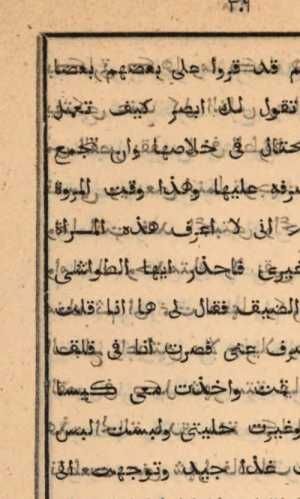 ٣٠٩
م قد قروا على بعضهم بعضا
تقول لك ابصر كيف تعمل
حتال فى خلاصها وان تجمع
عليها وهذا وقت المروة
انى لا اعرف هذه المراة
غيرى فاحذر ايها الطواشى
الضيف فقال لى ها انا قلت
عنى فصرت انا فى قلق
واخذت معى كيسا
وغيرت حليتى ولبست لبس
هذا جيد وتوجهت الى